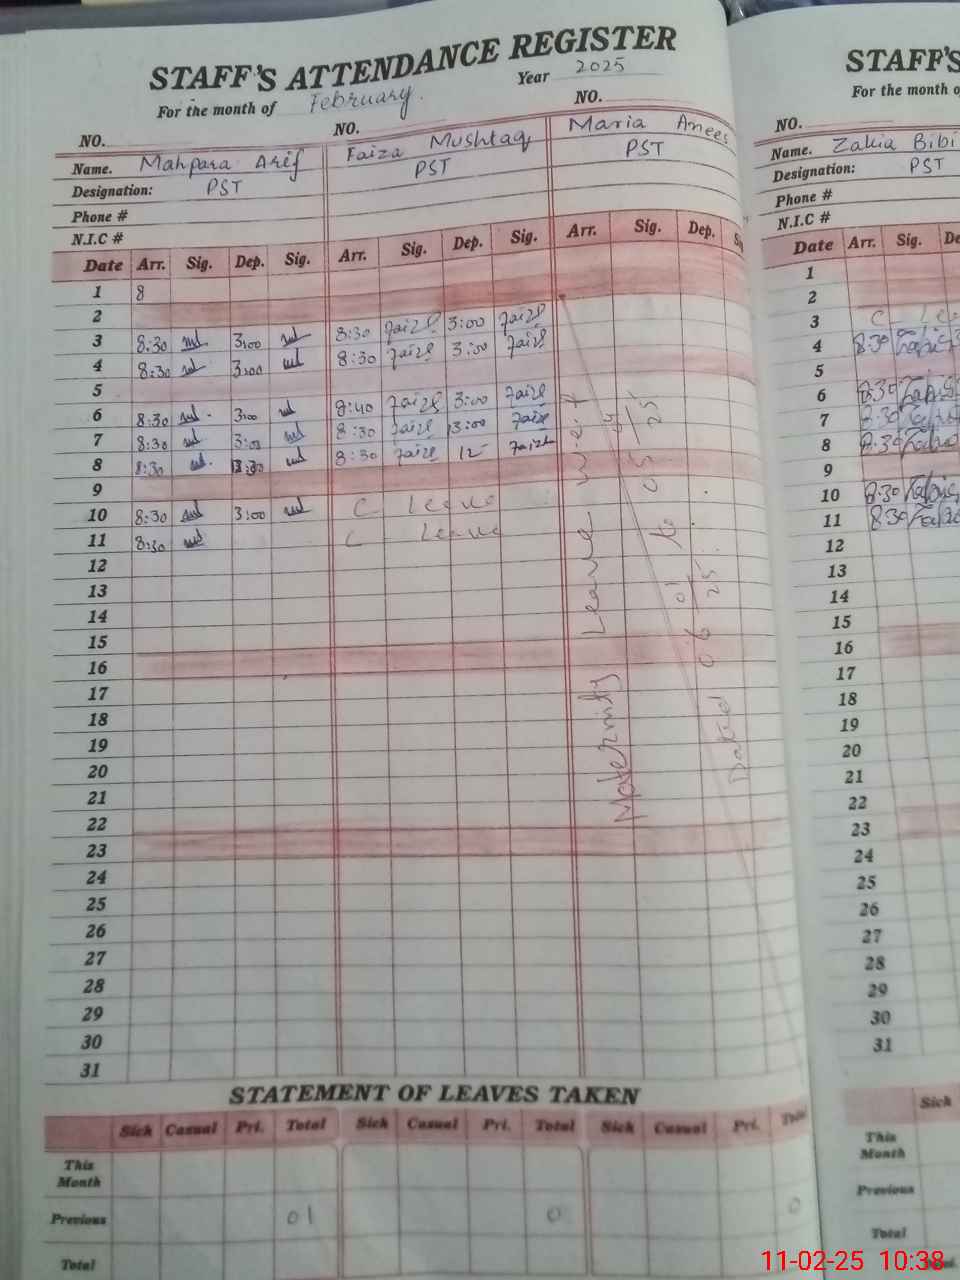 STAFF'S ATTENDANCE REGISTER
For the month of February. Year 2025
NO. NO. NO.
Name. Mahpara Arif Faiza Mushtaq Maria Anees
Designation: PST PST PST
Phone #
N.I.C #
Date Arr. Sig. Dep. Sig. Arr. Sig. Dep. Sig. Arr. Sig. Dep.
1 8
2
3 8:30 3:00 8:30 Faiza 3:00 Faiza
4 8:30 3:00 8:30 Faiza 3:00 Faiza
5
6 8:30 3:00 8:40 Faiza 3:00 Faiza
7 8:30 3:00 8:30 Faiza 3:00 Faiza
8 8:30 8:30 Faiza 12 Faiza
9
10 8:30 3:00 C Leave
11 8:30 C Leave
12
13
14
15
16
17
18
19
20
21
22
23
24
25
26
27
28
29
30
31
Maternity Leave w.e.f
05 25 to
Dated 06 01 25
STATEMENT OF LEAVES TAKEN
Sick Casual Pri. Total Sick Casual Pri. Total Sick Casual Pri. Total
This Month
Previous 01 0 0
Total
STAFF'S
For the month o
NO.
Name. Zakia Bibi
Designation: PST
Phone #
N.I.C #
Date Arr. Sig. De
1
2
3 C Le
4 8:30
5
6 8:30
7 8:30
8 8:30
9
10 8:30
11 8:30
12
13
14
15
16
17
18
19
20
21
22
23
24
25
26
27
28
29
30
31
Sick
This Month
Previous
Total
11-02-25 10:38